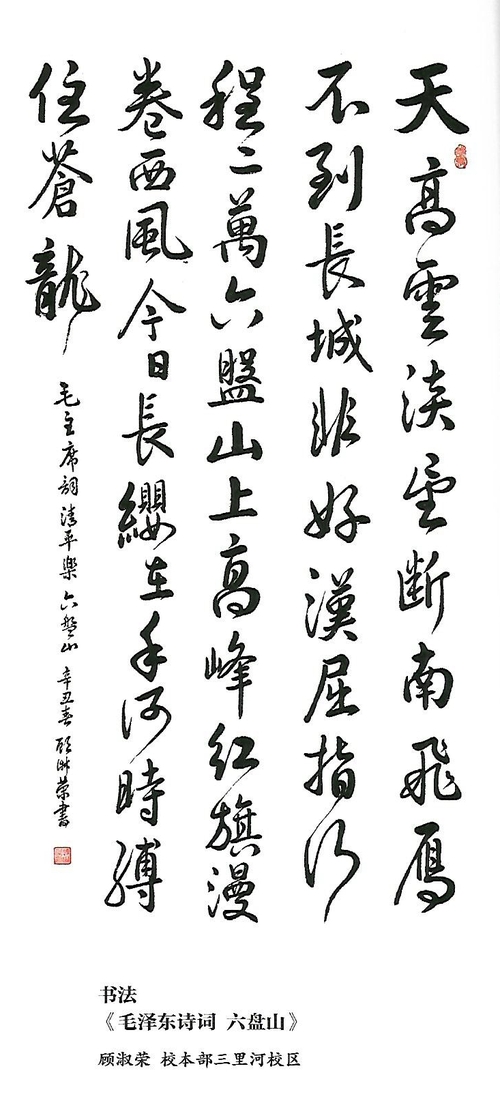 天高雲淡望断南飛雁
不到長城非好漢屈指行
程二萬六盤山上高峰红旗漫
卷西風今日長纓在手何時縛
住蒼龍
毛主席詞清平樂六盤山 辛丑春 顾淑荣書
书法
《毛泽东诗词 六盘山》
顾淑荣 校本部三里河校区